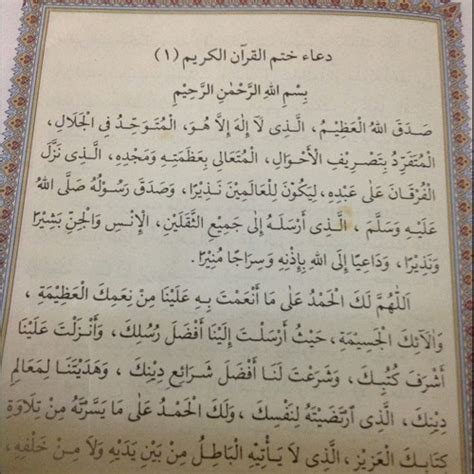 دعاء ختم القرآن الكريم (١)
بِسْمِ اللهِ الرَّحْمٰنِ الرَّحِيْمِ
صَدَقَ اللهُ الْعَظِيْمُ، الَّذِى لَآ إِلٰهَ إِلَّا هُوَ، الْمُتَوَحِّدُ فِى الْجَلَالِ،
الْمُتَفَرِّدُ بِتَصْرِيْفِ الْأَحْوَالِ، الْمُتَعَالِى بِعَظَمَتِهِ وَمَجْدِهِ، الَّذِى نَزَّلَ
الْفُرْقَانَ عَلٰى عَبْدِهِ، لِيَكُوْنَ لِلْعَالَمِيْنَ نَذِيْرًا، وَصَدَقَ رَسُوْلُهُ صَلَّى اللهُ
عَلَيْهِ وَسَلَّمَ، الَّذِى أَرْسَلَهُ إِلٰى جَمِيْعِ الثَّقَلَيْنِ، الْإِنْسِ وَالْجِنِّ بَشِيْرًا
وَنَذِيْرًا، وَدَاعِيًا إِلَى اللهِ بِإِذْنِهِ وَسِرَاجًا مُنِيْرًا.
اَللّٰهُمَّ لَكَ الْحَمْدُ عَلٰى مَا أَنْعَمْتَ بِهِ عَلَيْنَا مِنْ نِعَمِكَ الْعَظِيْمَةِ،
وَاٰلَائِكَ الْجَسِيْمَةِ، حَيْثُ أَرْسَلْتَ إِلَيْنَا أَفْضَلَ رُسُلِكَ، وَأَنْزَلْتَ عَلَيْنَا
أَشْرَفَ كُتُبِكَ، وَشَرَعْتَ لَنَا أَفْضَلَ شَرَائِعِ دِيْنِكَ، وَهَدَيْتَنَا لِمَعَالِمِ
دِيْنِكَ، الَّذِى ارْتَضَيْتَهُ لِنَفْسِكَ، وَلَكَ الْحَمْدُ عَلٰى مَا يَسَّرْتَهُ مِنْ تِلَاوَةِ
كِتَابِكَ الْعَزِيْزِ، الَّذِى لَا يَأْتِيْهِ الْبَاطِلُ مِنْ بَيْنِ يَدَيْهِ وَلَا مِنْ خَلْفِهِ،